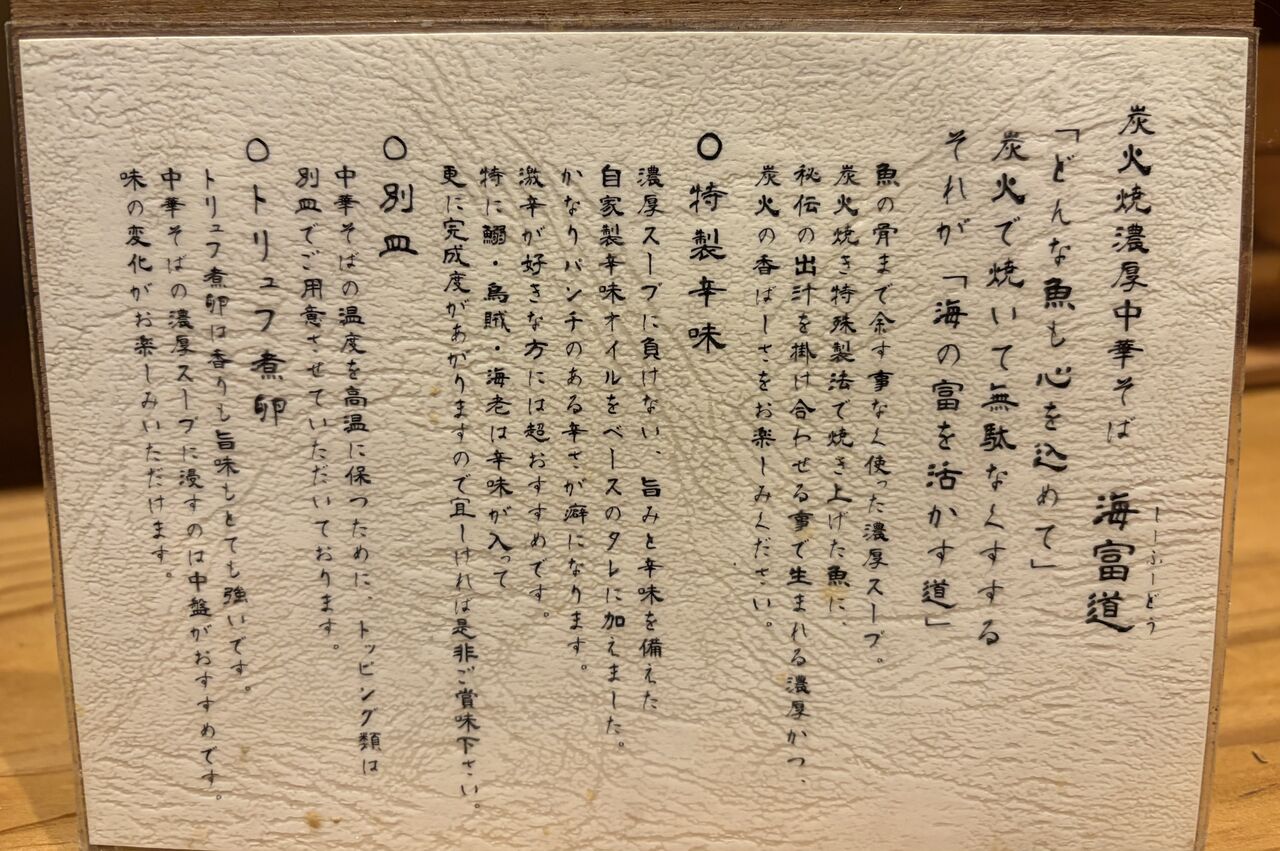 炭火焼濃厚中華そば 海富道
しーふーどう
「どんな魚も心を込めて」
炭火で焼いて無駄なくすする
それが「海の富を活かす道」
魚の骨まで余す事なく使った濃厚スープ。
炭火焼き特殊製法で焼き上げた魚に、
秘伝の出汁を掛け合わせる事で生まれる濃厚かつ、
炭火の香ばしさをお楽しみください。
○特製辛味
濃厚スープに負けない、旨みと辛味を備えた
自家製辛味オイルをベースのタレに加えました。
かなりパンチのある辛さが癖になります。
激辛が好きな方には超おすすめです。
特に鰯・烏賊・海老は辛味が入って
更に完成度があがりますので宜しければ是非ご賞味下さい。
○別皿
中華そばの温度を高温に保つために、トッピング類は
別皿でご用意させていただいております。
○トリュフ煮卵
トリュフ煮卵は香りも旨味もとても強いです。
中華そばの濃厚スープに浸すのは中盤がおすすめです。
味の変化がお楽しみいただけます。